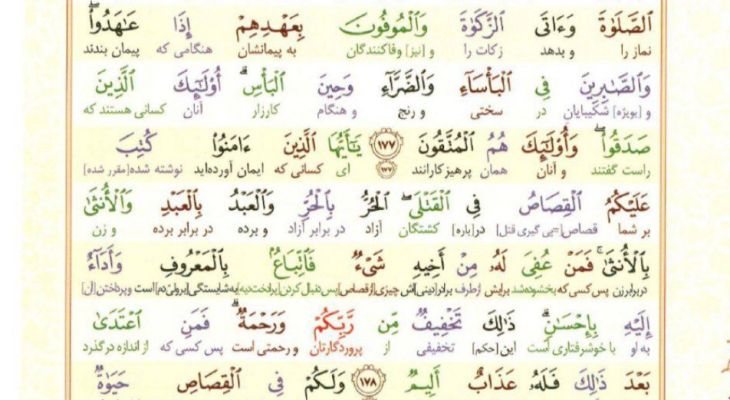 ٱلصَّلَوٰةَ وَءَاتَى ٱلزَّكَوٰةَ وَٱلۡمُوفُونَ بِعَهۡدِهِمۡ إِذَا عَـٰهَدُواْۖ
نماز را و بدهد زکات را و [نیز] وفاکنندگان به پیمانشان هنگامی که پیمان بندند
وَٱلصَّـٰبِرِينَ فِي ٱلۡبَأۡسَآءِ وَٱلضَّرَّآءِ وَحِينَ ٱلۡبَأۡسِۗ أُوْلَـٰٓئِكَ ٱلَّذِينَ
و [بویژه] شکیبایان در سختی و رنج و هنگام کارزار آنان کسانی هستند که
صَدَقُواْۖ وَأُوْلَـٰٓئِكَ هُمُ ٱلۡمُتَّقُونَ ١٧٧ يَـٰٓأَيُّهَا ٱلَّذِينَ ءَامَنُواْ كُتِبَ
راست گفتند و آنان همان پرهیزکارانند ۱۷۷ ای کسانی که ایمان آورده‌اید نوشته شده[مقرر شده]
عَلَيۡكُمُ ٱلۡقِصَاصُ فِي ٱلۡقَتۡلَىۖ ٱلۡحُرُّ بِٱلۡحُرِّ وَٱلۡعَبۡدُ بِٱلۡعَبۡدِ وَٱلۡأُنثَىٰ
بر شما قصاص[=پی گیری قتل] در[باره] کشتگان آزاد در برابر آزاد و برده در برابر برده و زن
بِٱلۡأُنثَىٰۚ فَمَنۡ عُفِيَ لَهُۥ مِنۡ أَخِيهِ شَيۡءٞ فَٱتِّبَاعُۢ بِٱلۡمَعۡرُوفِ وَأَدَآءٌ
در برابر زن پس کسی که بخشوده شد برایش از طرف برادر[دینی]اش چیزی[از قصاص] پس دنبال کردن[پرداخت دیه] به شایستگی[بر ولی دم] است و پرداختن[آن]
إِلَيۡهِ بِإِحۡسَـٰنٖۗ ذَٰلِكَ تَخۡفِيفٞ مِّن رَّبِّكُمۡ وَرَحۡمَةٞۗ فَمَنِ ٱعۡتَدَىٰ
به او با خوشرفتاری است این [حکم] تخفیفی از پروردگارتان و رحمتی است پس کسی که از اندازه درگذرد
بَعۡدَ ذَٰلِكَ فَلَهُۥ عَذَابٌ أَلِيمٞ ١٧٨ وَلَكُمۡ فِي ٱلۡقِصَاصِ حَيَوٰةٞ